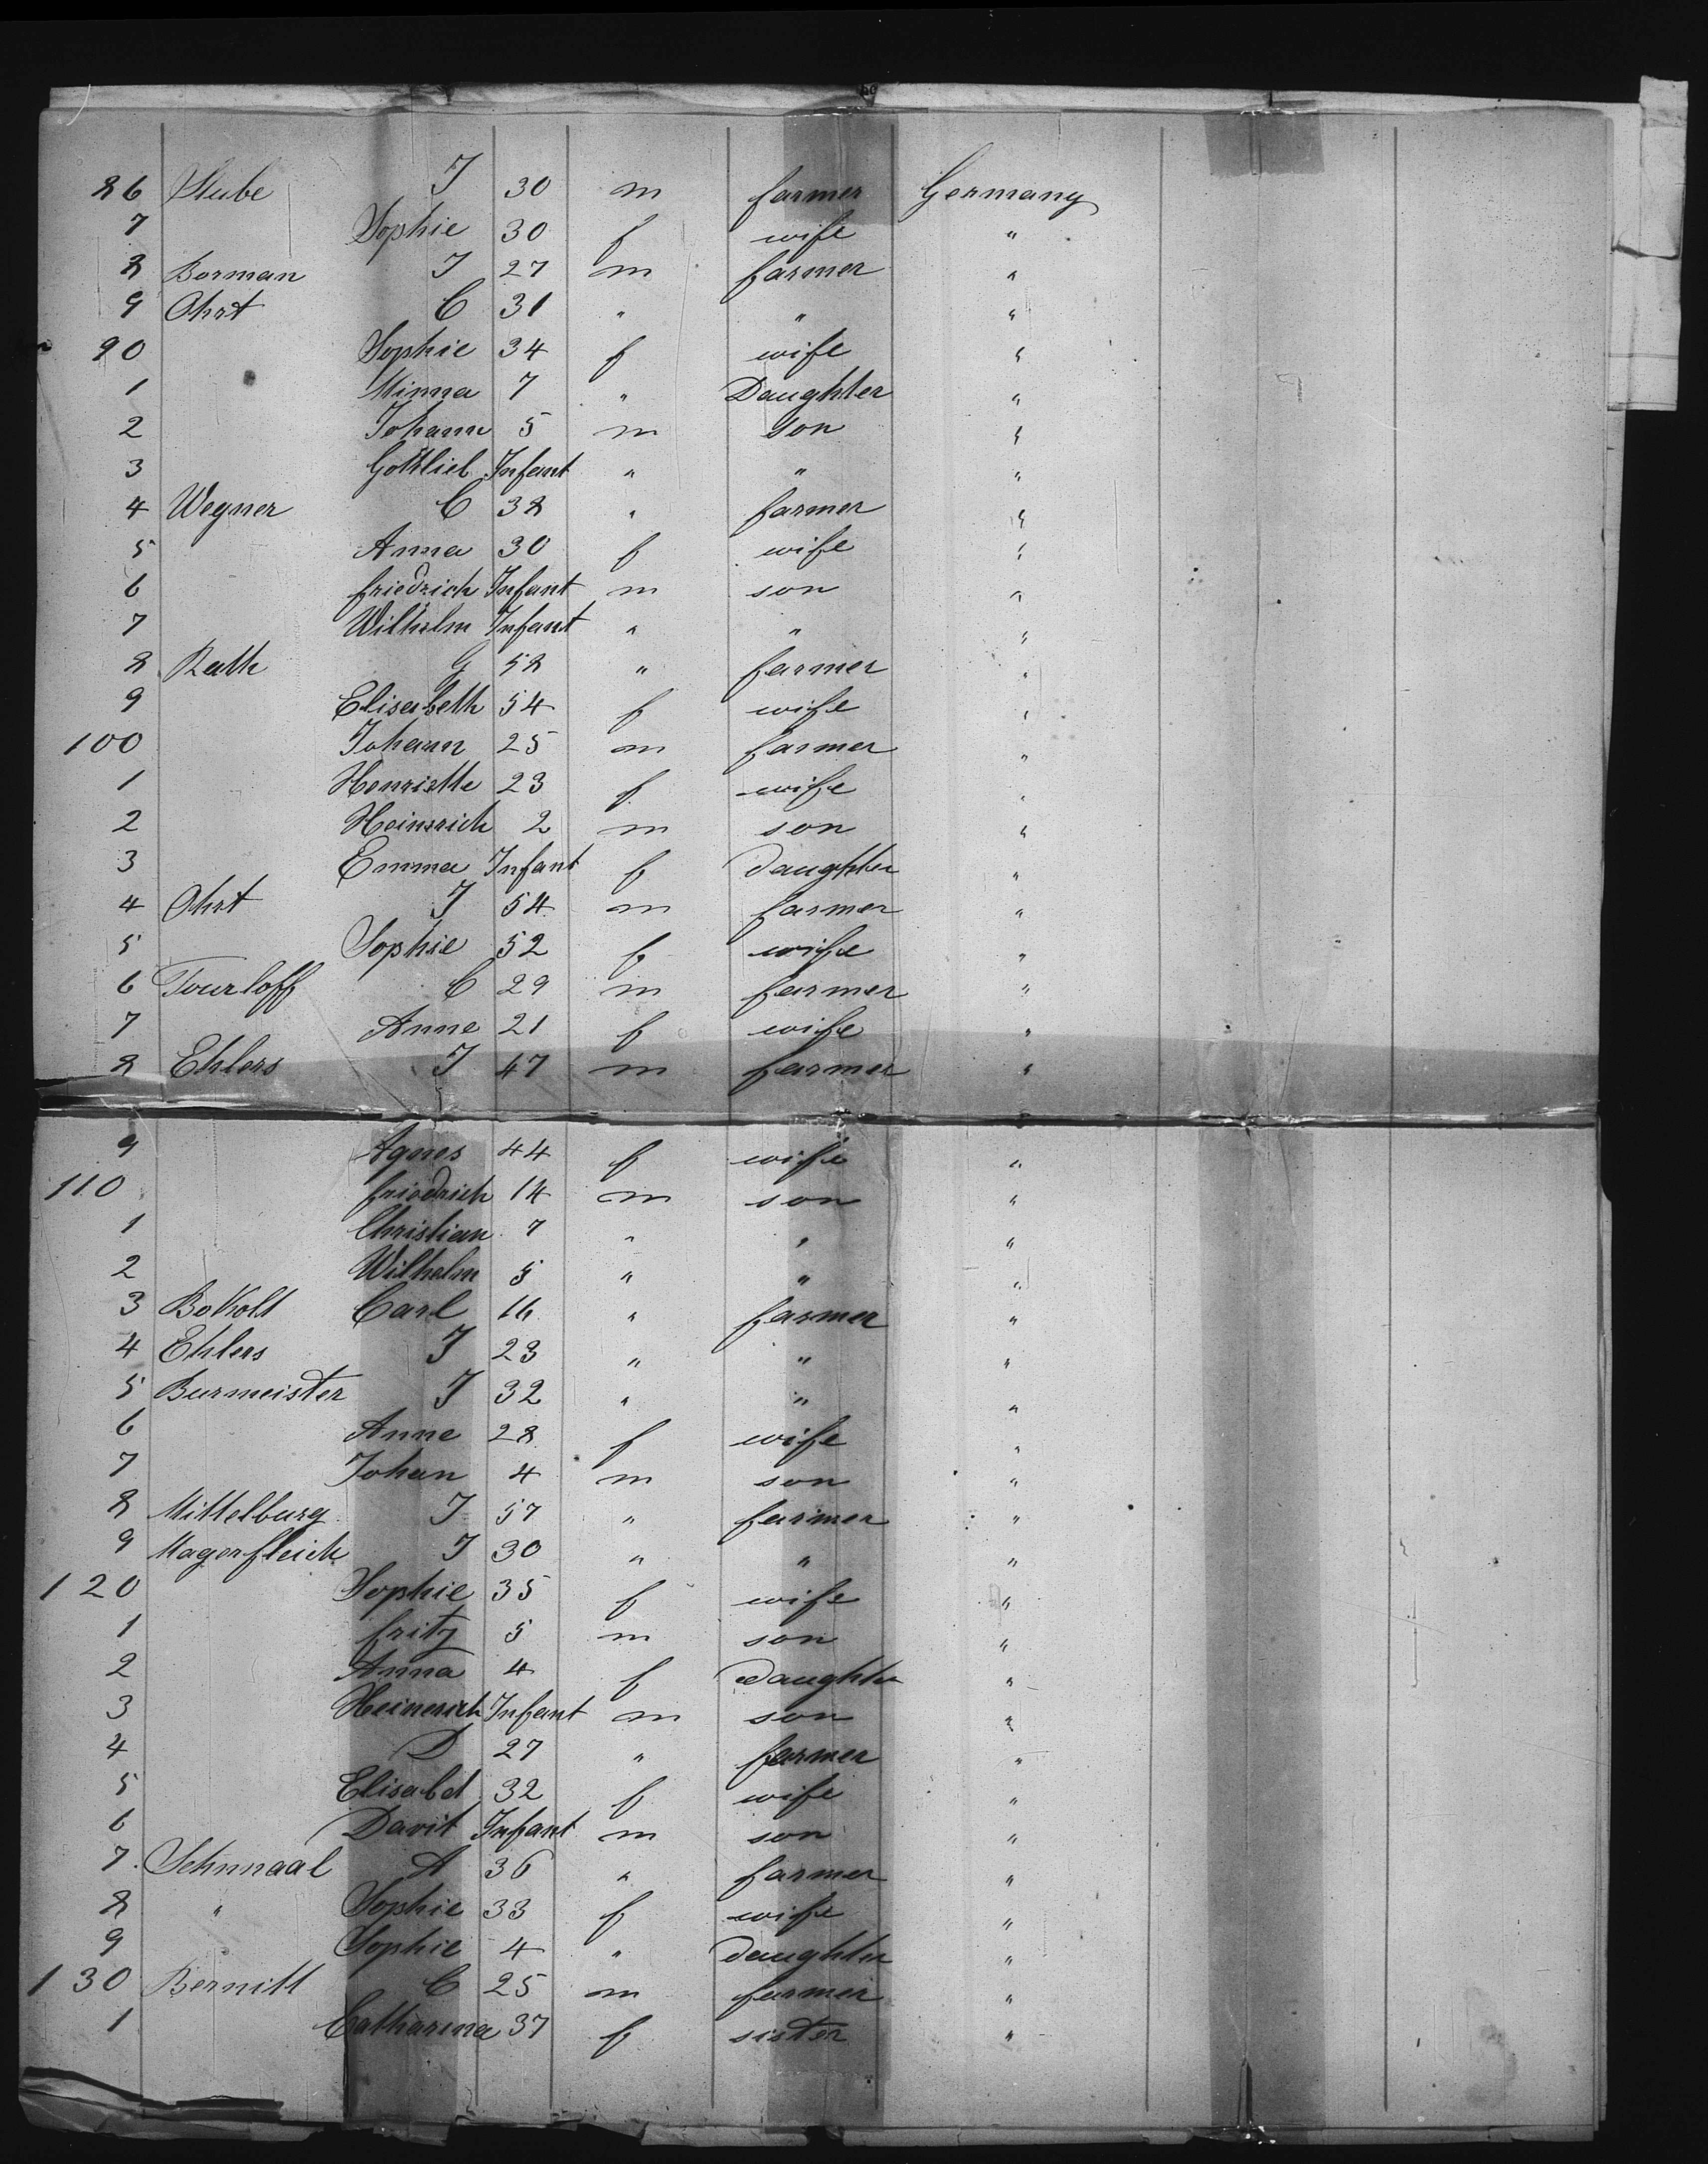 86 Stube J 30 m farmer Germany
7 Sophie 30 f wife "
8 Borman J 27 m farmer "
9 Ohrt C 31 " " "
90 Sophie 34 f wife "
1 Minna 7 " Daughter "
2 Johann 5 m son "
3 Gottlieb Infant " " "
4 Wegner C 38 " farmer "
5 Anna 30 f wife "
6 friedrich Infant m son "
7 Wilhelm Infant " " "
8 Rath G 58 " farmer "
9 Elisabeth 54 f wife "
100 Johann 25 m farmer "
1 Henriette 23 f wife "
2 Heinrich 2 m son "
3 Emma Infant f daughter "
4 Ohrt J 54 m farmer "
5 Sophie 52 f wife "
6 Tourloff C 29 m farmer "
7 Anne 21 f wife "
8 Ehlers J 47 m farmer "
9 Agnes 44 f wife "
110 friedrich 14 m son "
1 Christian 7 " " "
2 Wilhelm 5 " " "
3 Carl 16 " farmer "
4 Ehlers J 23 " " "
5 Burmeister J 32 " " "
6 Anne 28 f wife "
7 Johan 4 m son "
8 Mittelburg J 57 " farmer "
9 Magerfleich J 30 " " "
120 Sophie 35 f wife "
1 fritz 5 m son "
2 Anna 4 f daughter "
3 Heinerich Infant m son "
4 D 27 " farmer "
5 Elisabet 32 f wife "
6 Davit Infant m son "
7 Schmaal A 36 " farmer "
8 " Sophie 33 f wife "
9 Sophie 4 " daughter "
130 Bernitt C 25 m farmer "
1 Catharina 37 f sister "